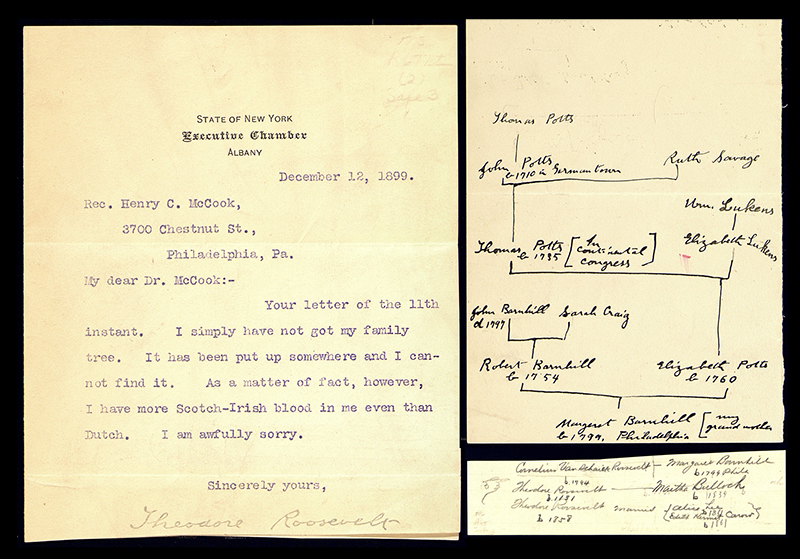 STATE OF NEW YORK
Executive Chamber
ALBANY
December 12, 1899.
Rec. Henry C. McCook,
3700 Chestnut St.,
Philadelphia, Pa.
My dear Dr. McCook:-
Your letter of the 11th
instant. I simply have not got my family
tree. It has been put up somewhere and I can-
not find it. As a matter of fact, however,
I have more Scotch-Irish blood in me even than
Dutch. I am awfully sorry.
Sincerely yours,
Theodore Roosevelt
Thomas Potts
John Potts
b 1710 in Germantown
Ruth Savage
Wm. Lukens
Thomas Potts
b 1735
[In
continental
congress]
Elizabeth Lukens
John Barnhill
d 1797
Sarah Craig
Robert Barnhill
b 1754
Elizabeth Potts
b 1760
Margaret Barnhill
b 1799, Philadelphia
[my
grandmother
Cornelius Van Schaick Roosevelt - Margaret Barnhill
b 1794
b 1799 Phila
Theodore Roosevelt - Martha Bullock
b 1831
Theodore Roosevelt married
b 1858
Alice Lee
Edith Carow
b 1861